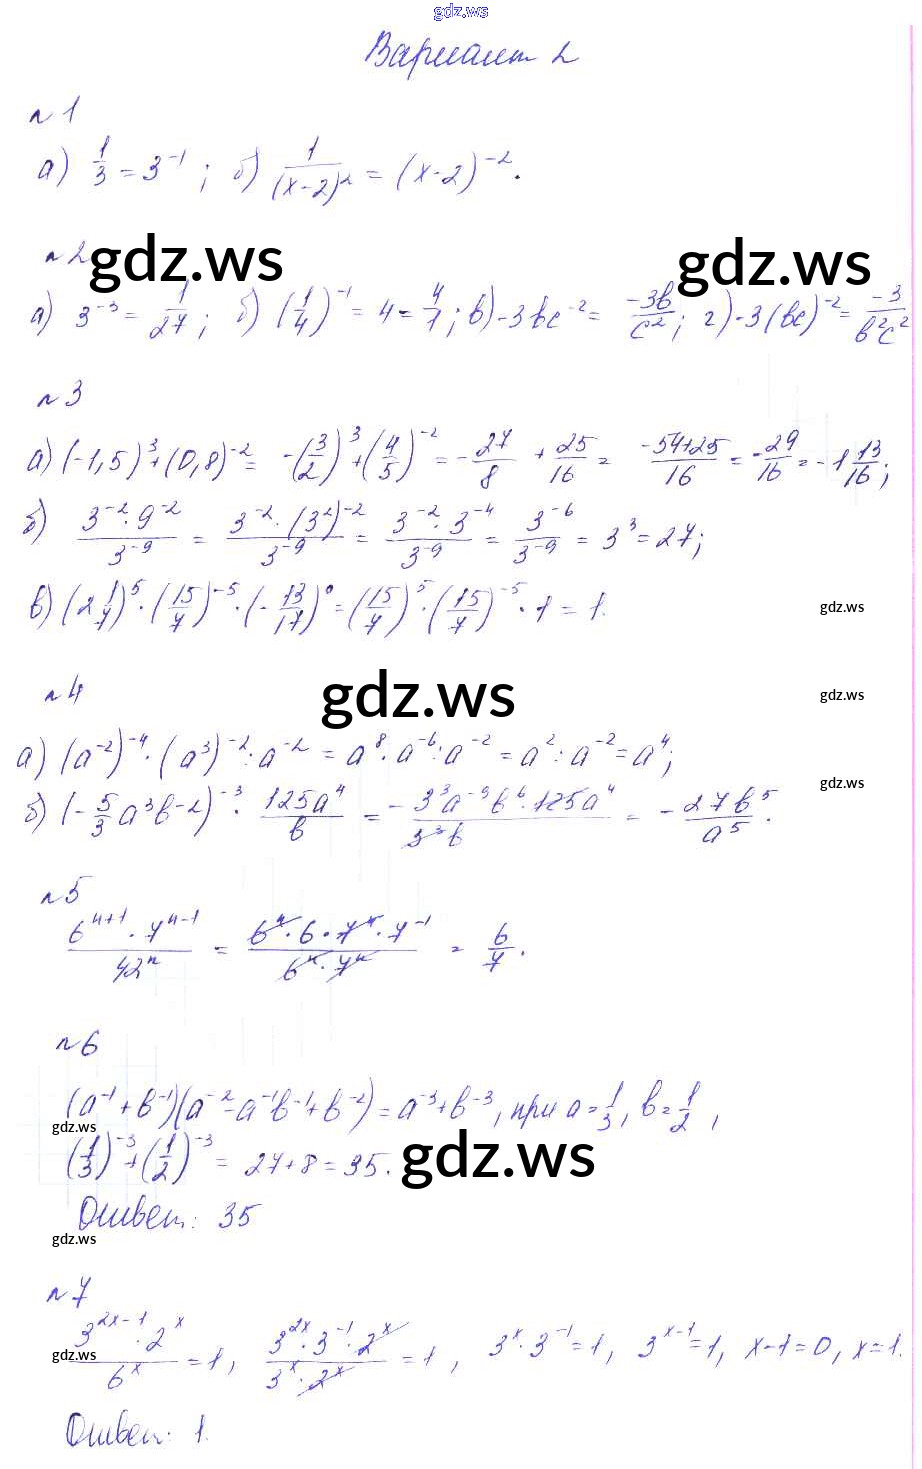 gdz.ws
Вариант 2
n 1
а) 1/3 = 3^-1 ; б) 1/(x-2)^2 = (x-2)^-2.
n 2 gdz.ws gdz.ws
а) 3^-3 = 1/27 ; б) (1/4)^-1 = 4 = 4/1 ; в) -3bc^-2 = -3b/c^2 ; г) -3(bc)^-2 = -3/b^2c^2
n 3
а) (-1,5)^3 + (0,8)^-2 = -(3/2)^3 + (4/5)^-2 = -27/8 + 25/16 = -54+25/16 = -29/16 = -1 13/16 ;
б) 3^-2 · 9^-2/3^-9 = 3^-2 · (3^2)^-2/3^-9 = 3^-2 · 3^-4/3^-9 = 3^-6/3^-9 = 3^3 = 27 ;
в) (2 1/7)^5 · (15/7)^-5 · (-13/17)^0 = (15/7)^5 · (15/7)^-5 · 1 = 1.
gdz.ws
n 4 gdz.ws gdz.ws
а) (a^-2)^-4 · (a^3)^-2 : a^-2 = a^8 · a^-6 : a^-2 = a^2 : a^-2 = a^4 ;
gdz.ws
б) (-5/3 a^3 b^-2)^-3 · 125a^4/b = -3^3 a^-9 b^6 · 125a^4/5^3 b = -27b^5/a^5.
n 5
6^n+1 · 7^n-1/42^n = 6^n · 6 · 7^n · 7^-1/6^n · 7^n = 6/7.
n 6
(a^-1 + b^-1)(a^-2 - a^-1 b^-1 + b^-2) = a^-3 + b^-3, при a = 1/3, b = 1/2 ,
gdz.ws gdz.ws
(1/3)^-3 + (1/2)^-3 = 27 + 8 = 35.
Ответ: 35
gdz.ws
n 7
3^2x-1 · 2^x/6^x = 1 , 3^2x · 3^-1 · 2^x/3^x · 2^x = 1 , 3^x · 3^-1 = 1, 3^x-1 = 1, x-1 = 0, x = 1.
gdz.ws
Ответ: 1.